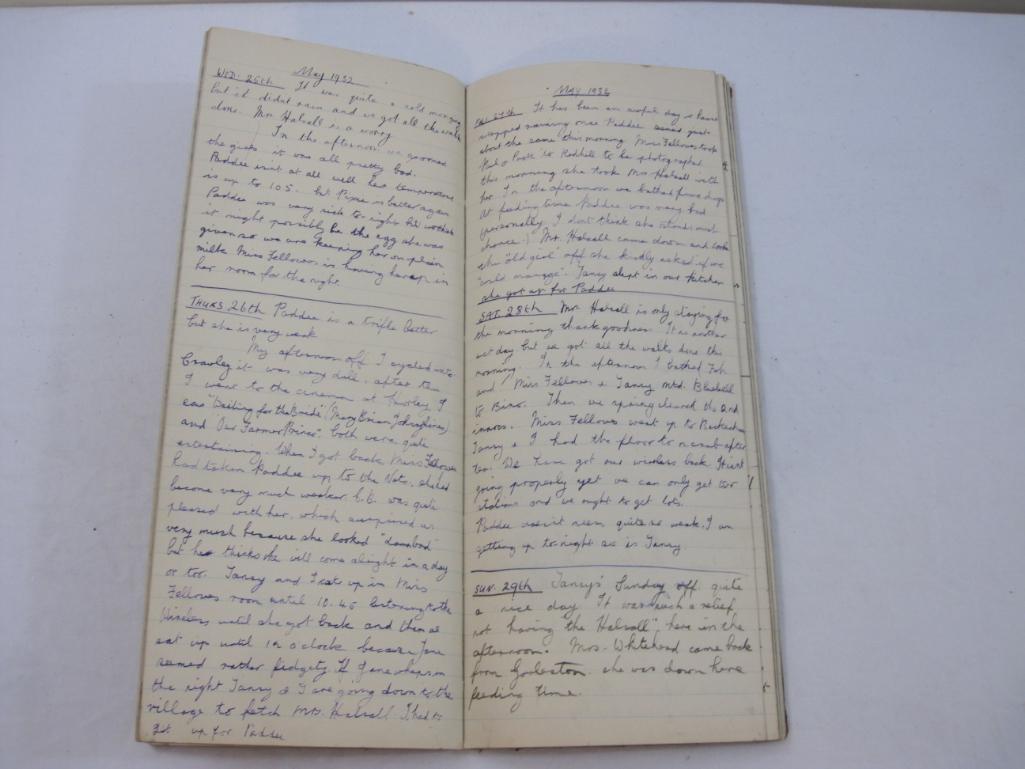 May 1932
WED. 25th It was quite a cold morning
but it didnt rain and we got all the walks
done. Mrs Halsall is a worry
In the afternoon we groomed
the it was all pretty bad.
Paddee isn't at all well her temperature
is up to 105. but is better again
Paddee was very sick to night
it might possibly be the egg she was
given so we are keeping her on plain
milk Miss Fellowes is having her up in
her room for the night.
THURS 26th Paddee is a trifle better
but she is very weak
My afternoon off I cycled into
Crawley it was very dull, after tea
I went to the cinema at Horley I
saw "Waiting for the Bride" (Mary Brian)
and both were quite
entertaining. When I got back Miss Fellowes
had taken Paddee up to the Vets, she had
become very much weaker was quite
pleased with her, which surprised us
very much because she looked
but he thinks she will come alright in a day
or too. Tansy and I sat up in Miss
Fellowes room until 10.45 listening to the
Wireless until she got back and then we
sat up until 12 o'clock because Jane
seemed rather fidgety. If Jane whelps in
the night Tansy & I are going down to the
village to fetch Mrs. Halsall. I had to
get up for Paddee
MAY 1932
27th It has been an awful day
raining once Paddee just
about the same this morning. Miss Fellowes took
to Redhill to be photographed
this morning she took Mrs Halsall with
her. In the afternoon we bathed five dogs
At feeding time Paddee was very bad
(personally I dont think she stands much
chance.) Mr. Halsall came down and took
the "old geal" off she kindly asked if we
Tansy slept in our kitchen
she got up for Paddee
SAT. 28th Mrs Halsall is only staying for
the morning thank goodness. It is another
wet day but we got all the walks done this
morning. In the afternoon I bathed
and Miss Fellowes & Tansy mtd. Bluebell
to Then we spring cleaned the 2nd
Miss Fellowes went up to
Tansy & I had the floor to scrub after
tea. We have got our wireless back it isnt
going properly yet we can only get two
stations and we ought to get lots.
Paddee doesn't seem quite so weak. I am
getting up to night so is Tansy
SUN. 29th Tansy's Sunday off quite
a nice day. It was such a relief
not having "the Halsall" here in the
afternoon. Mrs. Whitehead came back
from Gorleston. she was down here
feeding time.